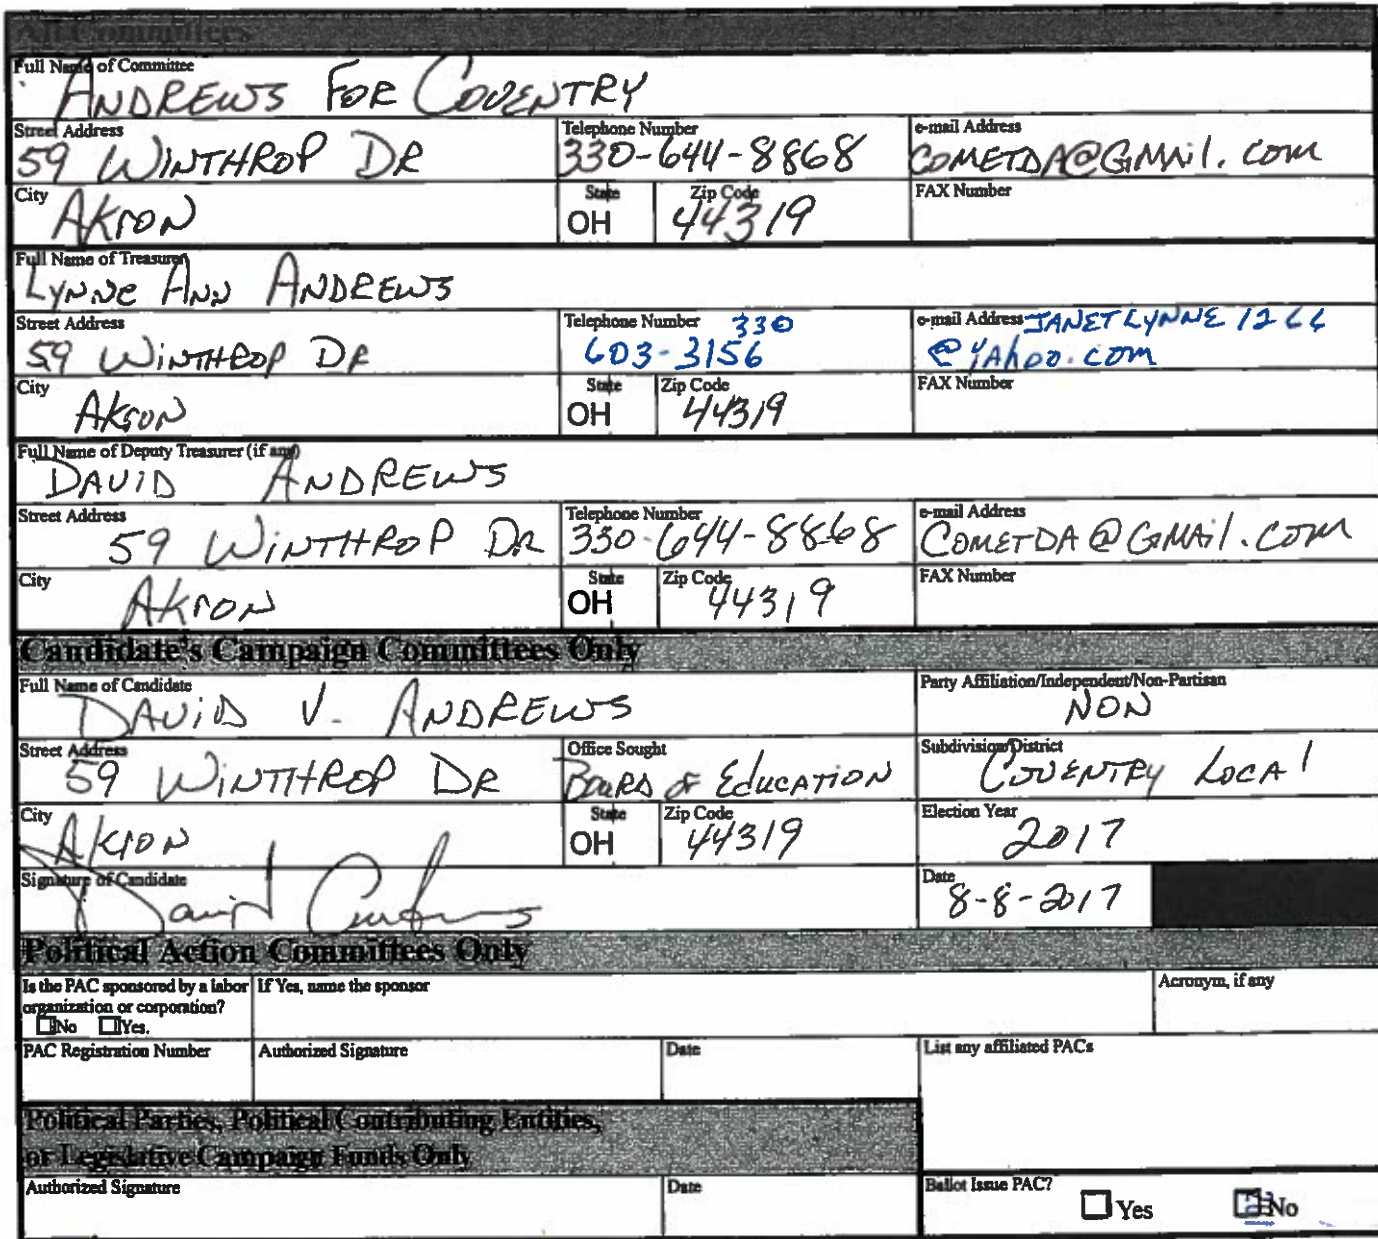 All Committees
Full Name of Committee
ANDREWS FOR COVENTRY
Street Address
59 WINTHROP DR
Telephone Number
330-644-8868
e-mail Address
COMETDA@GMAil.com
City
AKRON
State
OH
Zip Code
44319
FAX Number
Full Name of Treasurer
LYNNE ANN ANDREWS
Street Address
59 WINTHROP DR
Telephone Number 330
603-3156
e-mail Address JANETLYNNE 1266
@YAhoo.com
City
AKRON
State
OH
Zip Code
44319
FAX Number
Full Name of Deputy Treasurer (if any)
DAVID ANDREWS
Street Address
59 WINTHROP DR
Telephone Number
330-644-8868
e-mail Address
COMETDA@GMAil.com
City
AKRON
State
OH
Zip Code
44319
FAX Number
Candidate's Campaign Committees Only
Full Name of Candidate
DAVID V. ANDREWS
Party Affiliation/Independent/Non-Partisan
NON
Street Address
59 WINTHROP DR
Office Sought
BOARD OF EDUCATION
Subdivision/District
COVENTRY LOCAl
City
AKRON
State
OH
Zip Code
44319
Election Year
2017
Signature of Candidate
David Andrews
Date
8-8-2017
Political Action Committees Only
Is the PAC sponsored by a labor
organization or corporation?
No Yes.
If Yes, name the sponsor
Acronym, if any
PAC Registration Number
Authorized Signature
Date
List any affiliated PACs
Political Parties, Political Contributing Entities,
or Legislative Campaign Funds Only
Authorized Signature
Date
Ballot Issue PAC?
Yes No